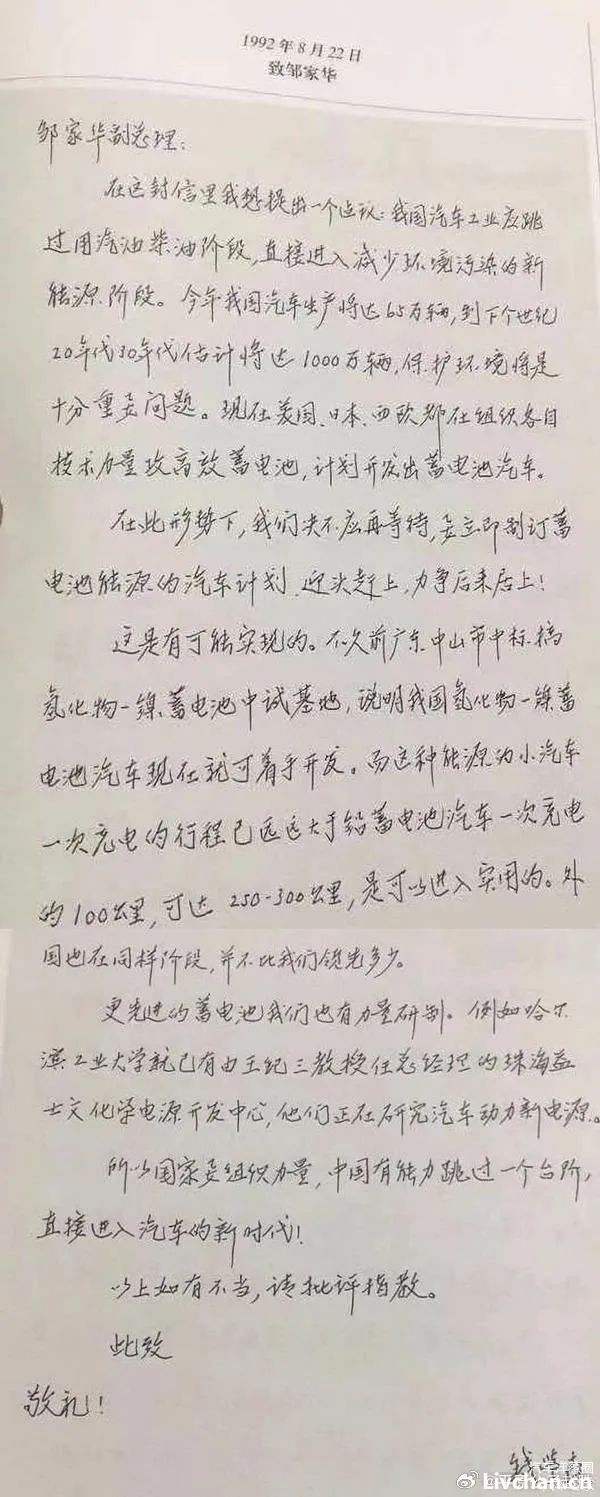 1992年8月22日
致邹家华
邹家华副总理：
在这封信里我想提出一个建议：我国汽车工业应跳
过用汽油柴油阶段，直接进入减少环境污染的新
能源阶段。今年我国汽车生产将达65万辆，到下个世纪
20年代30年代估计将达1000万辆，保护环境将是
十分重要问题。现在美国、日本、西欧都在组织各自
技术力量攻高效蓄电池，计划开发出蓄电池汽车。
在此形势下，我们决不应再等待，要立即制订蓄
电池能源的汽车计划，迎头赶上，力争后来居上！
这是有可能实现的。不久前广东中山市中标搞
氢化物—镍蓄电池中试基地，说明我国氢化物—镍蓄
电池汽车现在就可着手开发。而这种能源为小汽车
一次充电的行程已远远大于铅蓄电池汽车一次充电
的100公里，可达250-300公里，是可以进入实用的。外
国也在同样阶段，并不比我们领先多少。
更先进的蓄电池我们也有力量研制。例如哈尔
滨工业大学就已有由王纪三教授任总经理的珠海益
士文化学电源开发中心，他们正在研究汽车动力新电源。
所以国家要组织力量，中国有能力跳过一个台阶，
直接进入汽车的新时代！
以上如有不当，请批评指教。
此致
敬礼！
钱学森
Livchan.cn